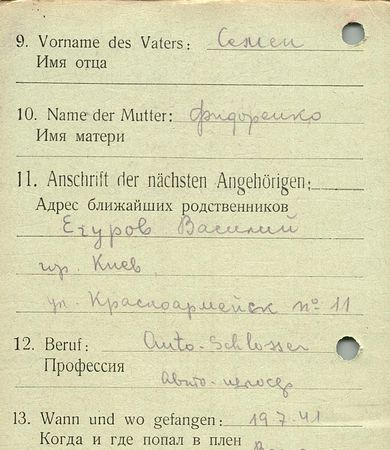 9. Vorname des Vaters: Семен
Имя отца
10. Name der Mutter: Фидоренко
Имя матери
11. Anschrift der nächsten Angehörigen:
Адрес ближайших родственников
Егуров Василий
гор. Киев
ул. Красноармейск № 11
12. Beruf: Auto-Schlosser
Профессия
Авто-
13. Wann und wo gefangen: 19 7.41
Когда и где попал в плен